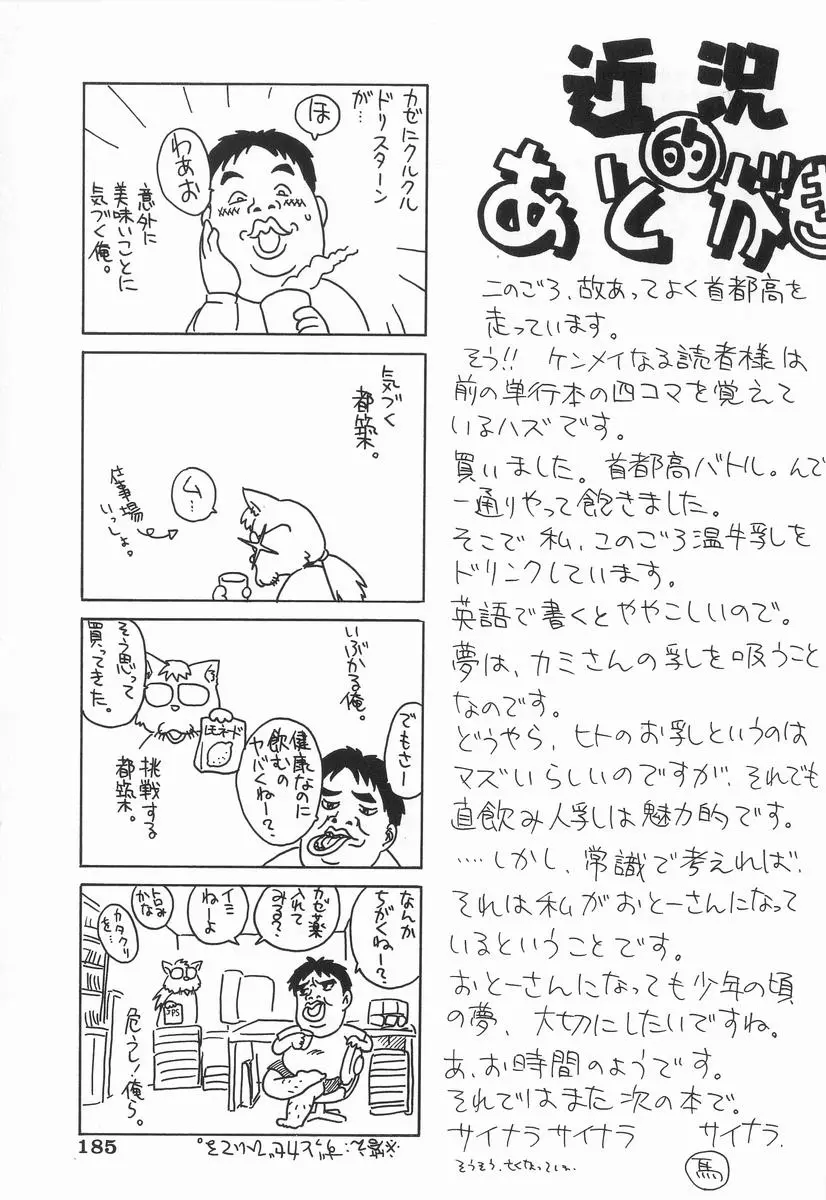 近況
的
あとがき
このごろ、故あってよく首都高を
走っています。
そう!! ケンメイなる読者様は
前の単行本の四コマを覚えて
いるハズです。
買いました。首都高バトル。んで
一通りやって飽きました。
そこで私、このごろ温牛乳を
ドリンクしています。
英語で書くとややこしいので。
夢は、カミさんの乳を吸うこと
なのです。
どうやら、ヒトのお乳というのは
マズいらしいのですが、それでも
直飲み人乳は魅力的です。
‥‥しかし、常識で考えれば、
それは私がおとーさんになって
いるということです。
おとーさんになっても少年の頃
の夢、大切にしたいですね。
あ、お時間のようです。
それではまた次の本で。
サイナラ サイナラ サイナラ
馬
カゼにクルクル
ドリスターン
が…
ほ
わぁお
意外に
美味いことに
気づく俺。
気づく
都築。
ム…
仕事場
いっしょ。
でもさー
いぶかる俺。
健康なのに
飲むの
ヤバくねー?
レモネード
そう思って
買ってきた。
挑戦する
都築。
なんか
ちがくねー?
カゼ薬
入れて
みる?
イミ
ねーよ
カタクリ
を…
危うし!俺ら。
185